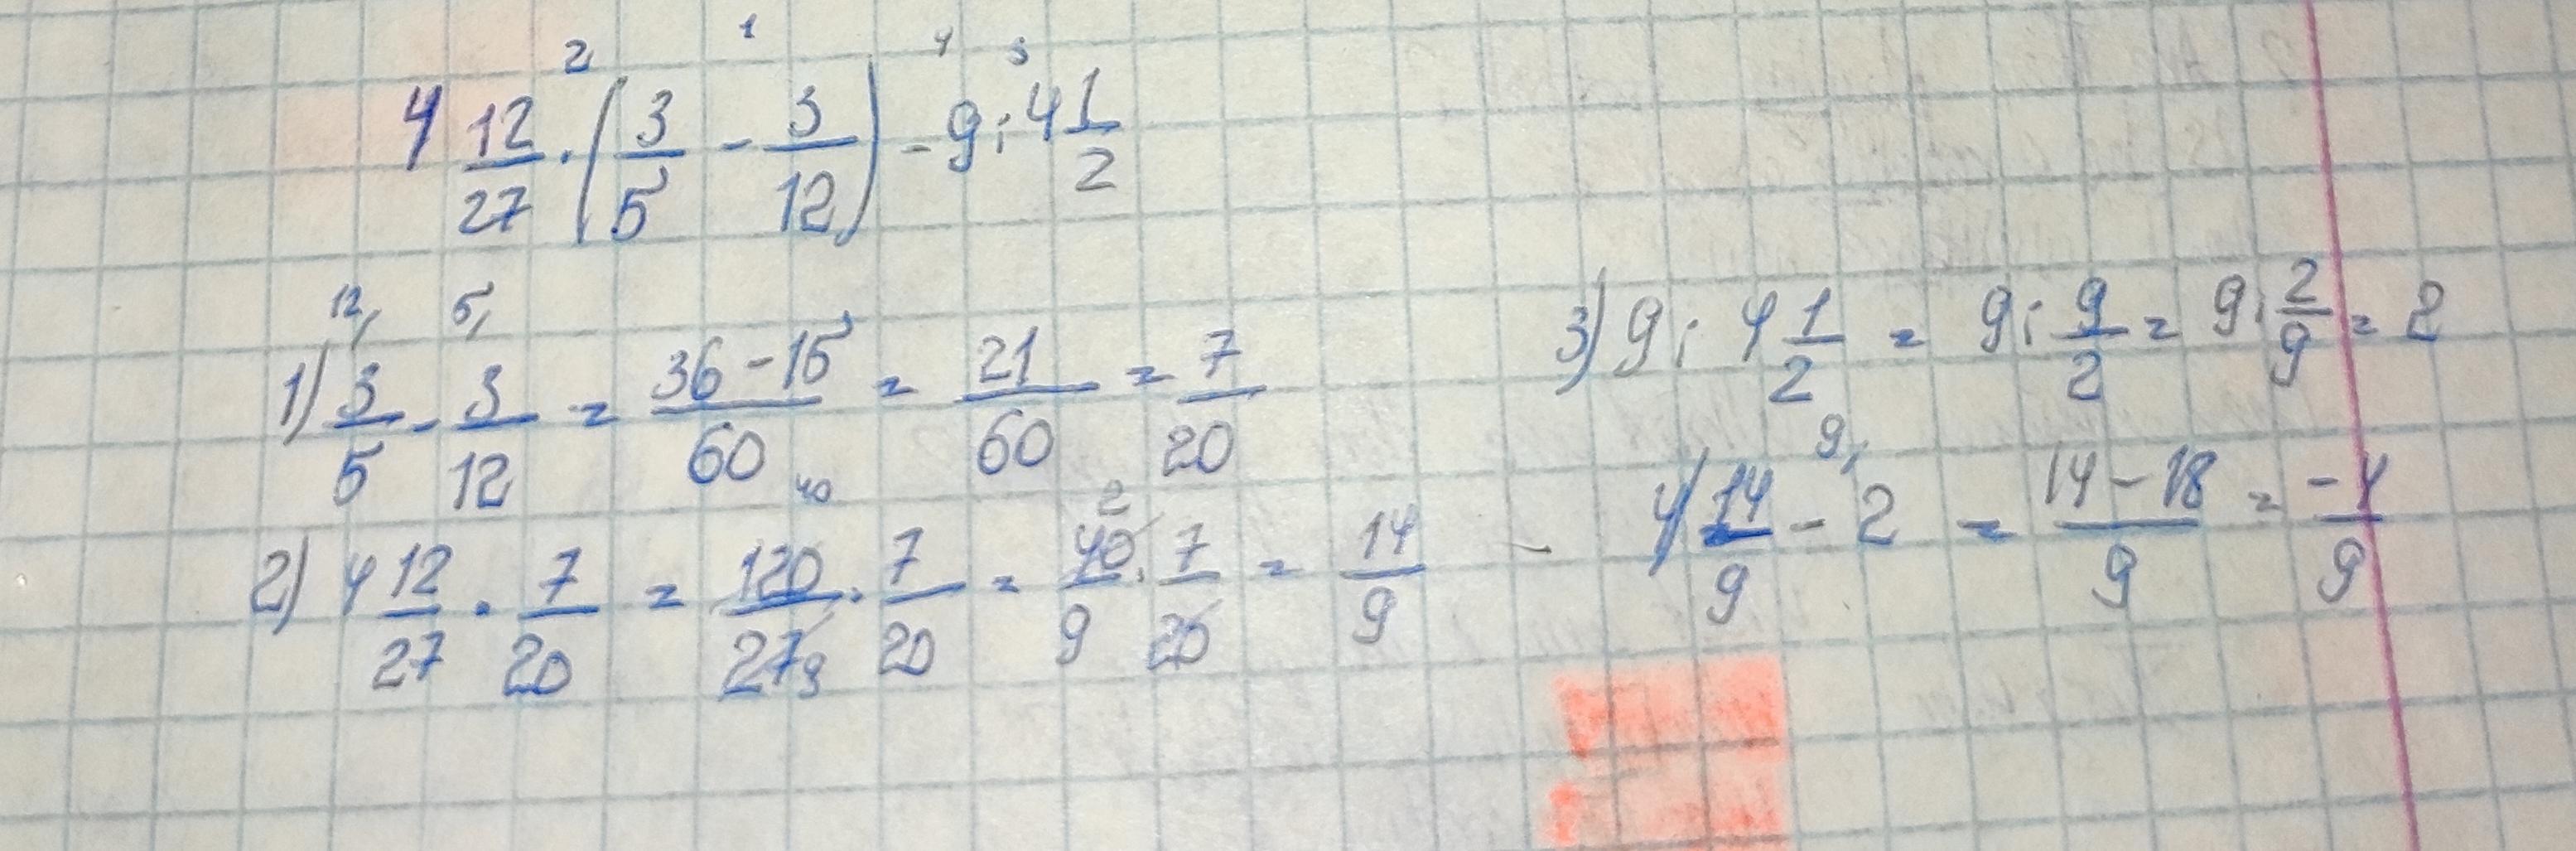 2 1 4 3
4 12/27 · (3/5 - 3/12) - 9 : 4 1/2
12, 5,
1) 3/5 - 3/12 = 36-15/60 = 21/60 = 7/20
40 2
2) 4 12/27 · 7/20 = 120/27 9 · 7/20 = 40/9 · 7/20 = 14/9
3) 9 : 4 1/2 = 9 : 9/2 = 9 · 2/9 = 2
9,
4) 14/9 - 2 = 14-18/9 = -4/9